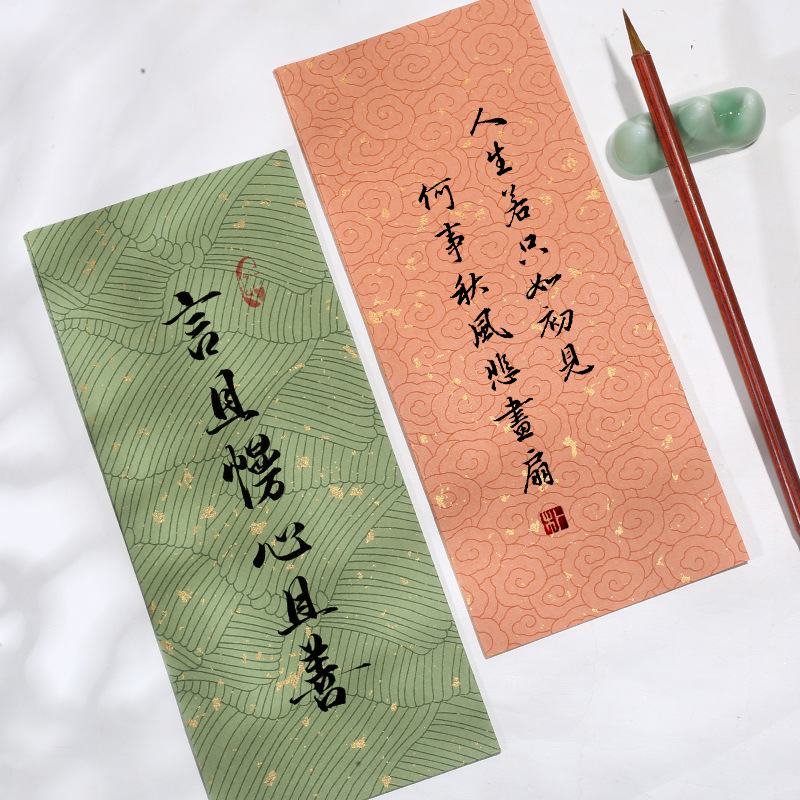 言且慢心且善
人生若只如初見
何事秋風悲畫扇